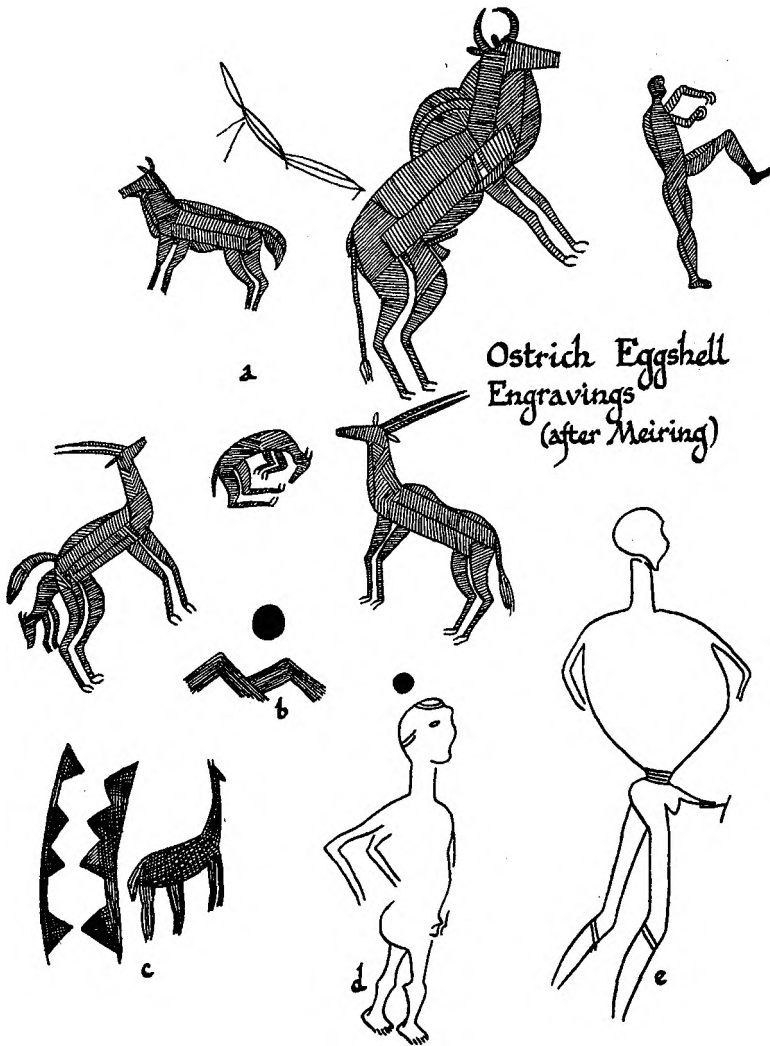 a
Ostrich Eggshell
Engravings
(after Meiring)
b
c
d
e